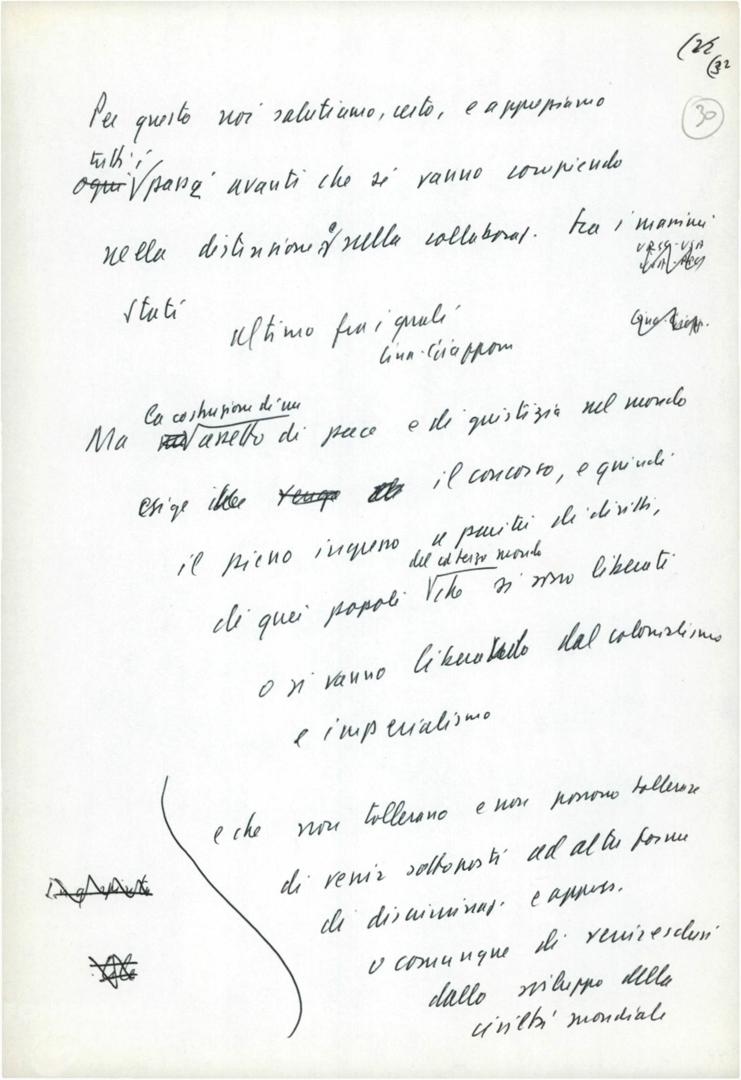 (32
30
Per questo noi salutiamo, certo, e apprezziamo
tutti i
ogni passi avanti che si vanno compiendo
nella distensione e nella collaboraz. tra i massimi
URSS-USA
stati
ultimo fra i quali
Cina-Giappone
Cina-Giapp.
la costruzione di un
Ma assetto di pace e di giustizia nel mondo
esige venga il concorso, e quindi
il pieno ingresso a parità di diritti,
del terzo mondo
di quei popoli che si sono liberati
o si vanno liberando dal colonialismo
e imperialismo
e che non tollerano e non possono tollerare
di venir sottoposti ad altre forme
di discriminaz. e oppress.
o comunque di venire esclusi
dallo sviluppo della
civiltà mondiale